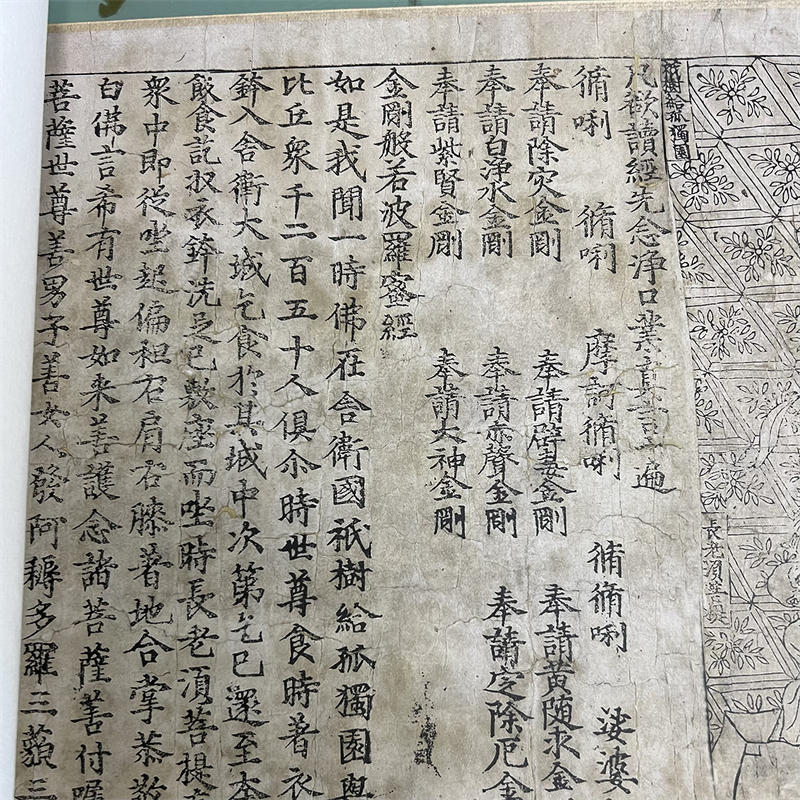 祇樹給孤獨園
長老須菩提
凡欲讀經先念淨口業真言一遍
脩唎 脩唎 摩訶脩唎 脩脩唎 娑婆
奉請除災金剛 奉請辟毒金剛 奉請黃随求金
奉請白淨水金剛 奉請赤聲金剛 奉請定除厄金
奉請紫賢金剛 奉請大神金剛
金剛般若波羅蜜經
如是我聞一時佛在舍衛國祇樹給孤獨園與
比丘衆千二百五十人俱尒時世尊食時著衣
鉢入舍衛大城乞食於其城中次第乞已還至本
飯食訖收衣鉢洗足已敷座而坐時長老須菩提
衆中即從坐起偏袒右肩右膝著地合掌恭敬
白佛言希有世尊如来善護念諸菩薩善付囑
菩薩世尊善男子善女人發阿耨多羅三藐三